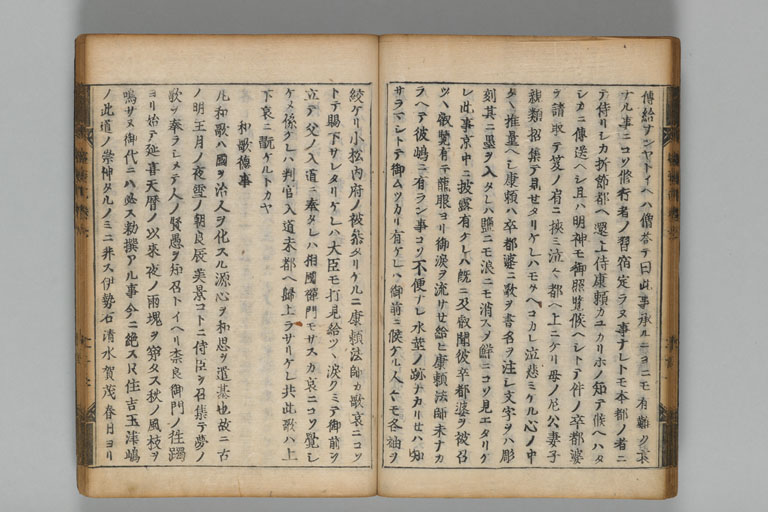 傳給ナンヤトイヘハ僧答テ曰此事承ルニヨニモ有難ク哀
ナル事ニコソ修行者ノ習宿定ラヌ事ナレトモ本都ノ者ニ
テ侍リシカ折節都ヘ還上侍康頼カユカリホノ知テ候ヘハタ
シカニ傳送ヘシ且ハ明神モ御照覽候ヘシトテ件ノ卒都婆
ヲ請取テ笈ノ肩ニ挾ミ泣々都ヘ上ニケリ母ノ尼公妻子
親類招集テ見セタリケレハモタヘコカレ泣悲ミケル心ノ中
タヽ推量ヘシ康頼ハ卒都婆ニ歌ヲ書名ヲ注シ文字ヲハ彫
刻其ニ墨ヲ入タレハ鹽ニモ浪ニモ消スヲ鮮ニコソ見エタリケ
レ此事京中ニ披露有ケレハ既ニ及叡聞彼卒都婆ヲ被召
ツヽ叡覽有テ龍眼ヨリ御淚ヲ流サセ給ヒ康頼法師未ナカ
ラヘテ彼嶋ニ有ラン事コソ不便ナレ水莖ノ跡ナカリセハ知
サラマシトテ御ムツカリ有ケレハ御前ニ候ケル人々モ各袖ヲ
絞ケリ小松内府ノ被參タリケルニ康頼法師カ歌哀ニコソ
トテ賜下サレタリケレハ大臣モ打見給ツヽ淚クミテ御前ヲ
立テ父ノ入道ニ奉タレハ相國禪門モサスカ哀ニコソ覺シ
ケメ係ケレハ判官入道未都ヘ歸上ラサリケレ共此歌ハ上
下哀ニ翫ケルトカヤ
和歌德事
凡和歌ハ國ヲ治人ヲ化スル源心ヲ和思ヲ遣基也故ニ古
ノ明王月ノ夜雪ノ朝良辰美景コトニ侍臣ヲ召集テ夢ノ
歌ヲ奉ラシメテ人ノ賢愚ヲ知召トイヘリ柰良御門ノ
ヨリ始テ延喜天暦ノ以來夜ノ雨塊ヲ穿タス秋ノ風枝ヲ
鳴サヌ御代ニハ必ス勅撰アル事今ニ絶ス住吉玉津嶋
ノ此道ノ崇神タルノミニ非ス伊勢石清水賀茂春日ヨリ